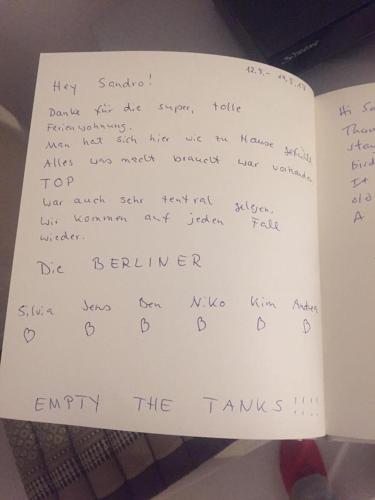 12.5.- 19.5.18
Hey Sandro!
Danke für die super, tolle
Ferienwohnung.
Man hat sich hier wie zu Hause gefühlt
Alles was macht braucht war vorhanden
TOP
War auch sehr zentral gelegen.
Wir kommen auf jeden Fall
wieder.
Die BERLINER
Silvia Jens Ben Niko Kim Andrea
EMPTY THE TANKS !!!!
Hi